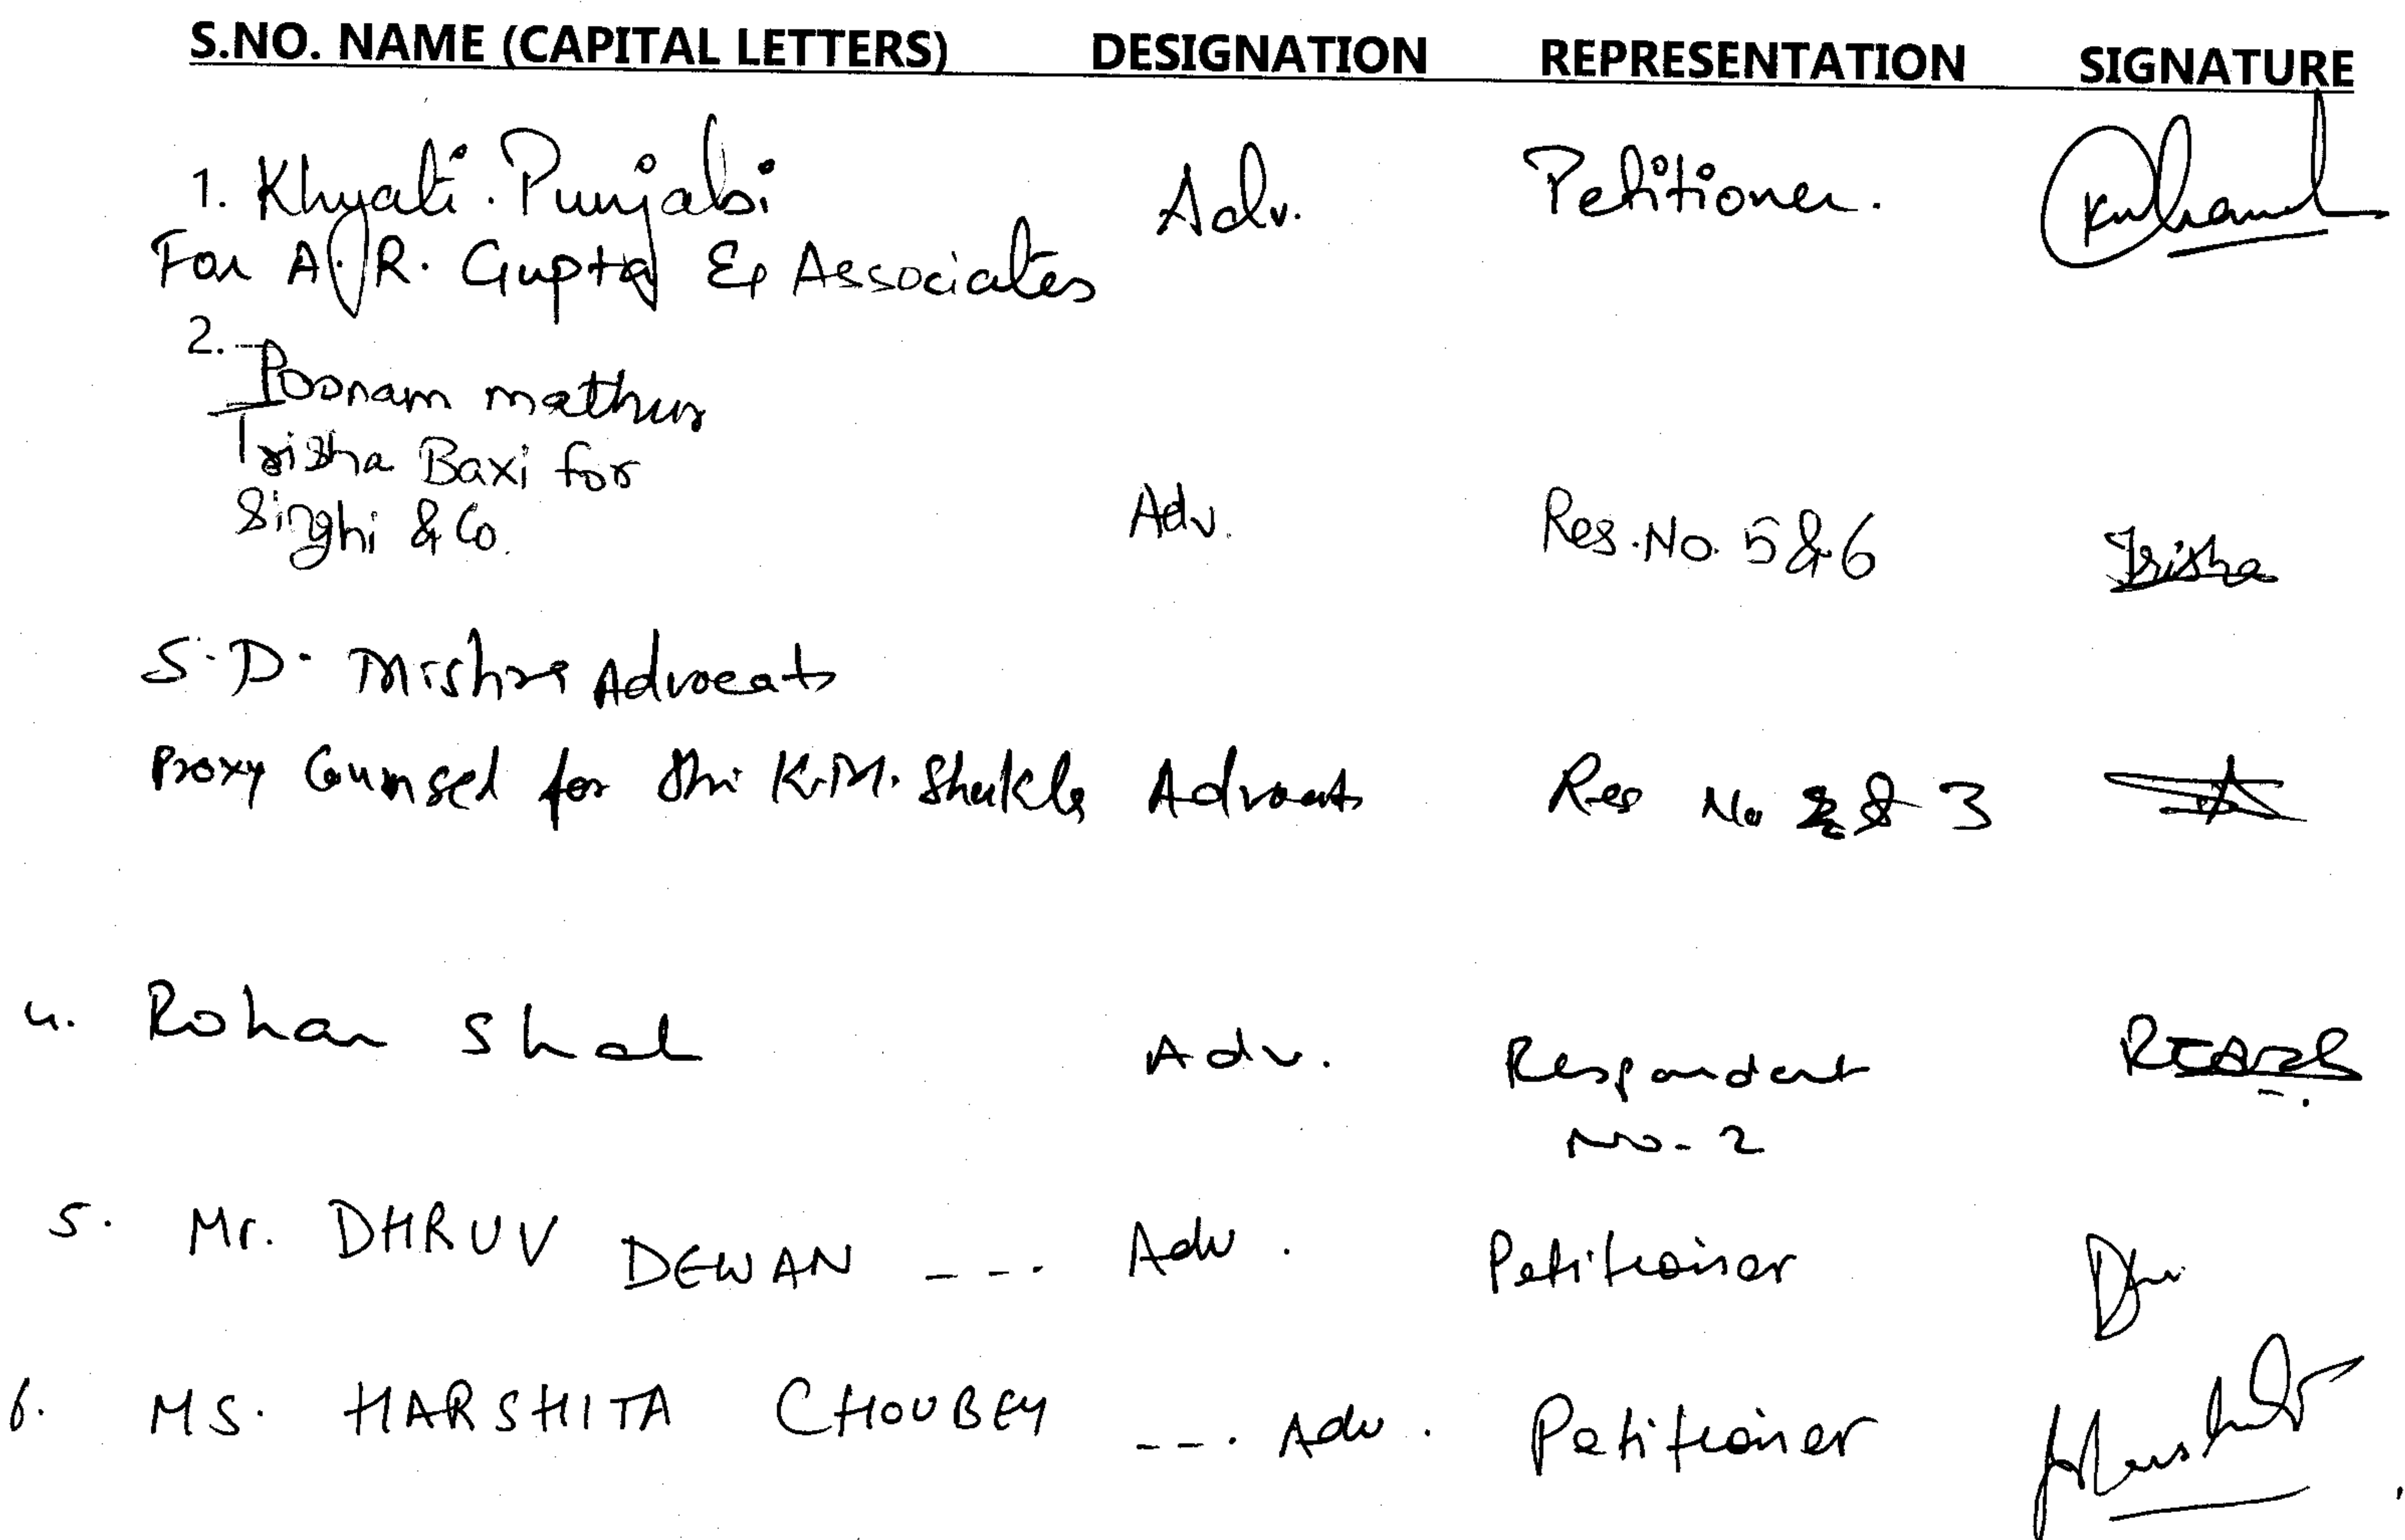 S.NO. NAME (CAPITAL LETTERS) DESIGNATION REPRESENTATION SIGNATURE
1. Khyati Punjabi Adv. Petitioner.
For A.R. Gupta & Associates
2.
Poonam mathur
Trisha Baxi for
Singhi & Co. Adv. Res. No. 5 & 6 Trisha
S. D. Mishra Advocate
Proxy Counsel for Shri K.M. Shukla Advocate Res No & 3
4. Rohan Shah Adv. Respondent
No - 2
5. Mr. DHRUV DEWAN --- Adv. Petitioner
6. MS. HARSHITA CHOUBEY --- Adv. Petitioner